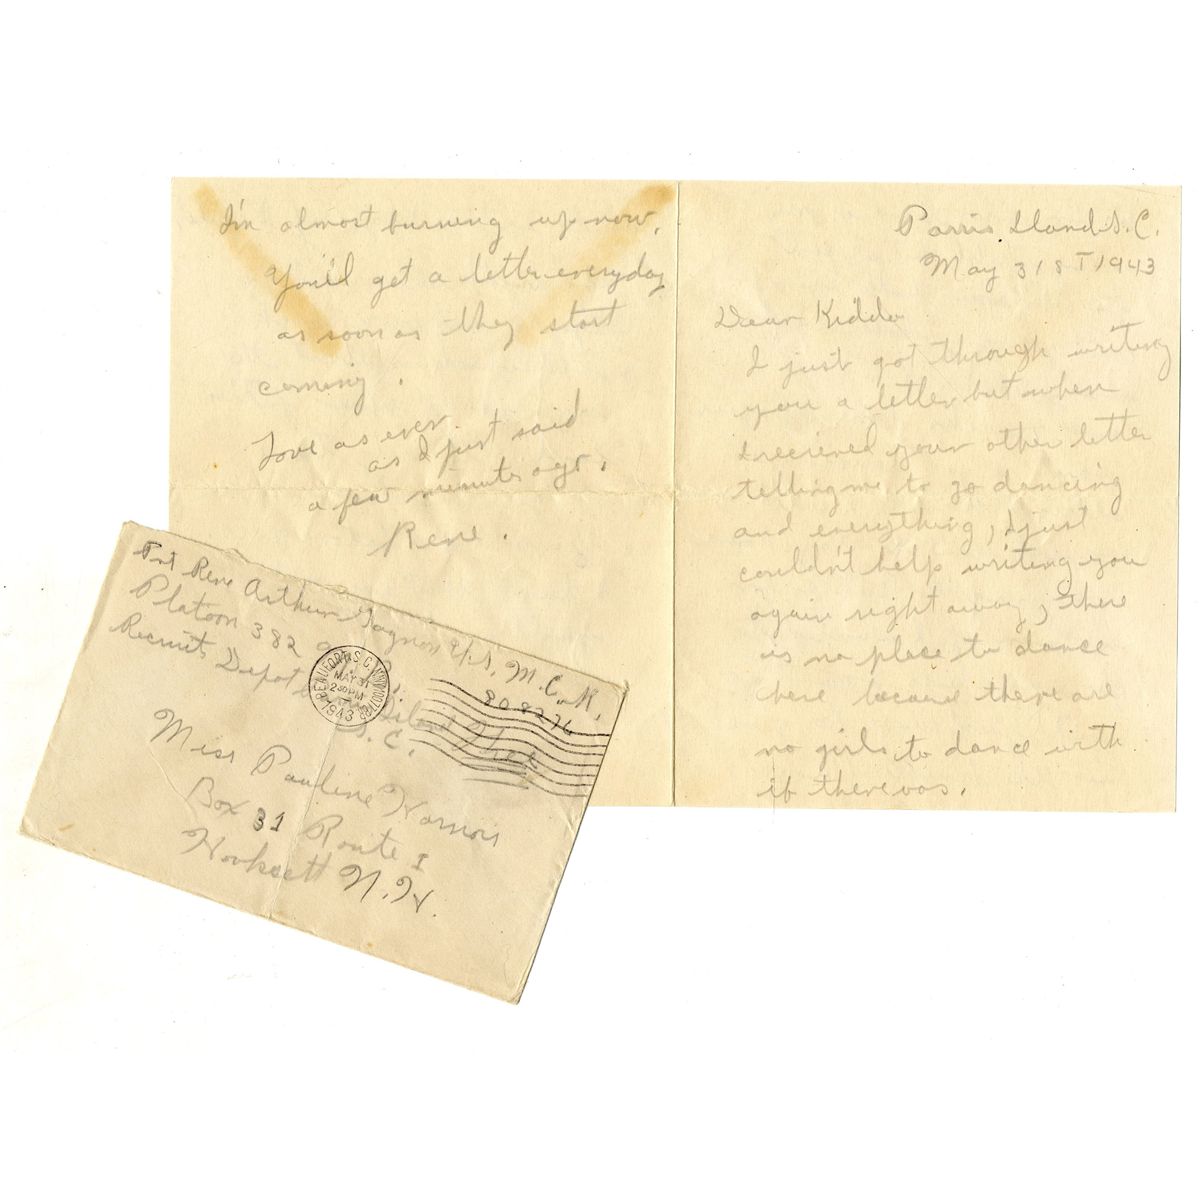 Parris Island S.C.
May 31ST 1943
Dear Kiddo
I just got through writing
you a letter but when
I recieved your other letter
telling me to go dancing
and everything, I just
couldn't help writing you
again right away, There
is no place to dance
here because there are
no girls to dance with
if there was.
I'm almost burning up now.
You'll get a letter everyday
as soon as they start
coming.
Love as ever
as I just said
a few minutes ago.
Rene.
Pvt Rene Arthur Gagnon U.S.M.C.R.
Platoon 382 808276
Recruit Depot Parris Island
S.C. Free
BEAUFORT S.C.
MAY 31
2 30 PM
1943
Miss Pauline Harnois
Box 31 Route 1
Hooksett N.H.